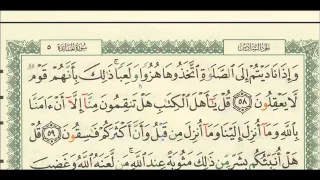 سورة المائدة ٥ الجزء السادس
وَإِذَا نَادَيْتُمْ إِلَى الصَّلَوٰةِ اتَّخَذُوهَا هُزُوًا وَلَعِبًا ۚ ذَٰلِكَ بِأَنَّهُمْ قَوْمٌ
لَّا يَعْقِلُونَ ٥٨ قُلْ يَٰٓأَهْلَ الْكِتَٰبِ هَلْ تَنقِمُونَ مِنَّآ إِلَّآ أَنْ ءَامَنَّا
بِاللَّهِ وَمَآ أُنزِلَ إِلَيْنَا وَمَآ أُنزِلَ مِن قَبْلُ وَأَنَّ أَكْثَرَكُمْ فَٰسِقُونَ ٥٩ قُلْ
هَلْ أُنَبِّئُكُم بِشَرٍّ مِّن ذَٰلِكَ مَثُوبَةً عِندَ اللَّهِ ۚ مَن لَّعَنَهُ اللَّهُ وَغَضِبَ